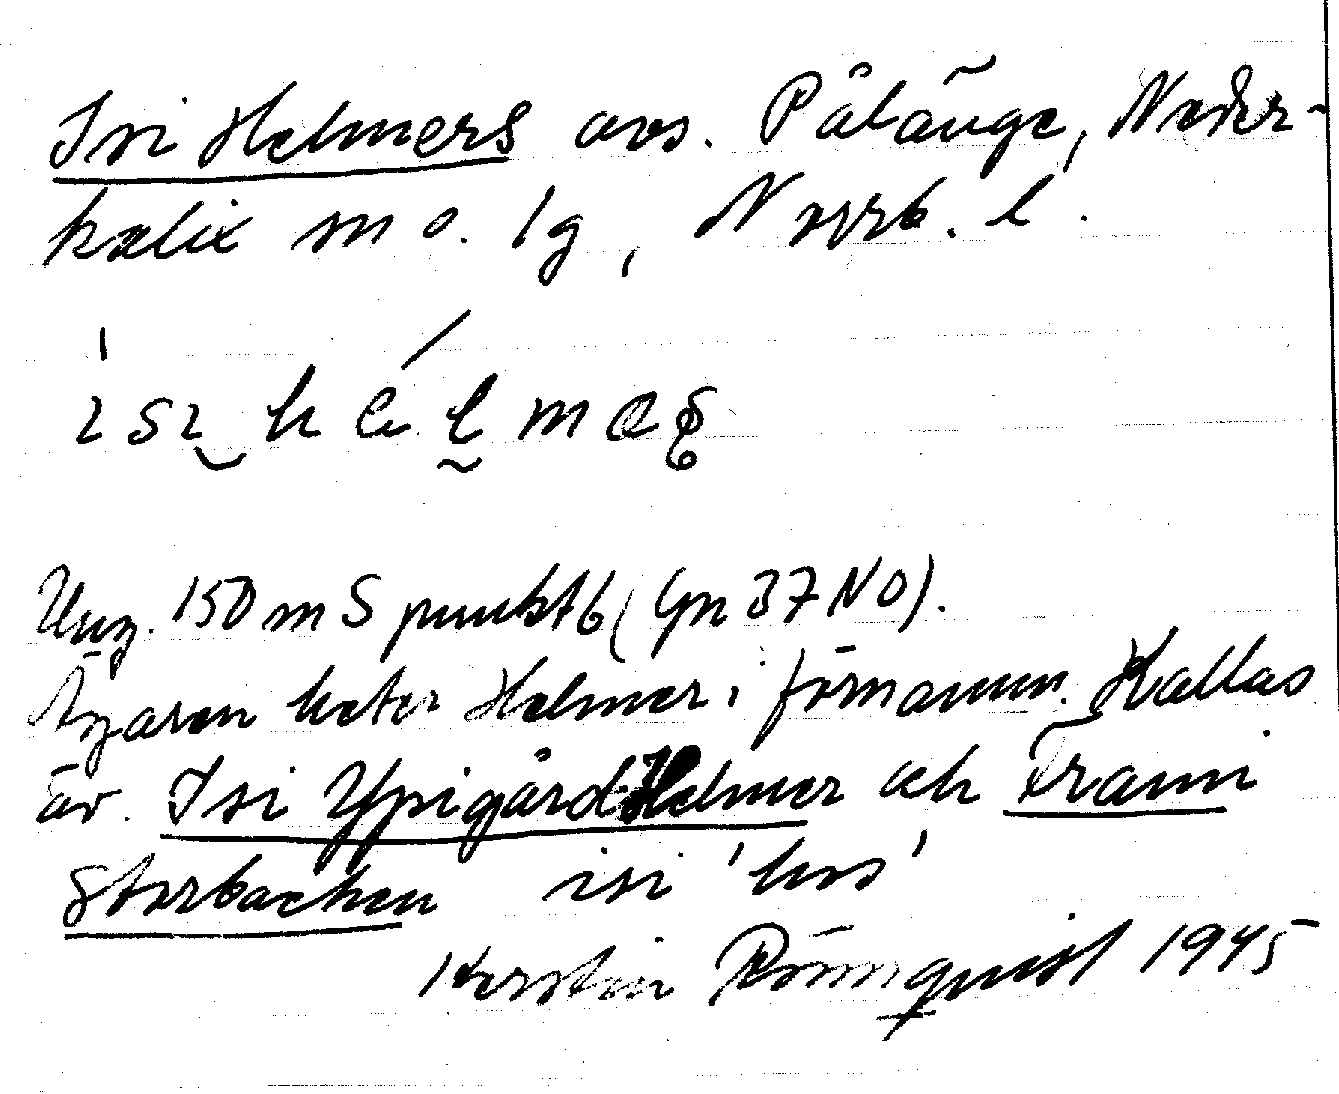 Isi Helmers avs. Pålänge, Neder-
kalix sn o. lg, Norrb. l.
Ung. 150 m S punkt 6 (Gn 37 NO).
Ägaren heter Helmer i förnamn. Kallas
äv. Isi Ypigård Helmer och Frami
Storbacken isi 'hos'
Kerstin Rönnquist 1945